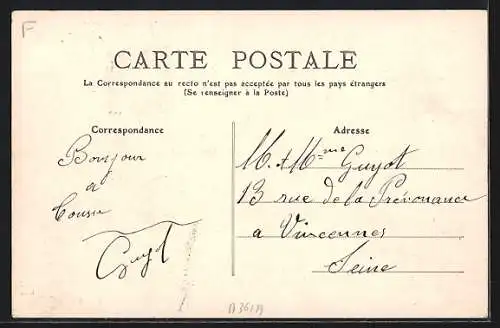 F
CARTE POSTALE
La Correspondance au recto n'est pas acceptée par tous les pays étrangers
(Se renseigner à la Poste)
Correspondance
Bonjour
a
Cousin
Guyot
Adresse
M. & Mme Guyot
13 rue de la Prévoyance
a Vincennes
Seine